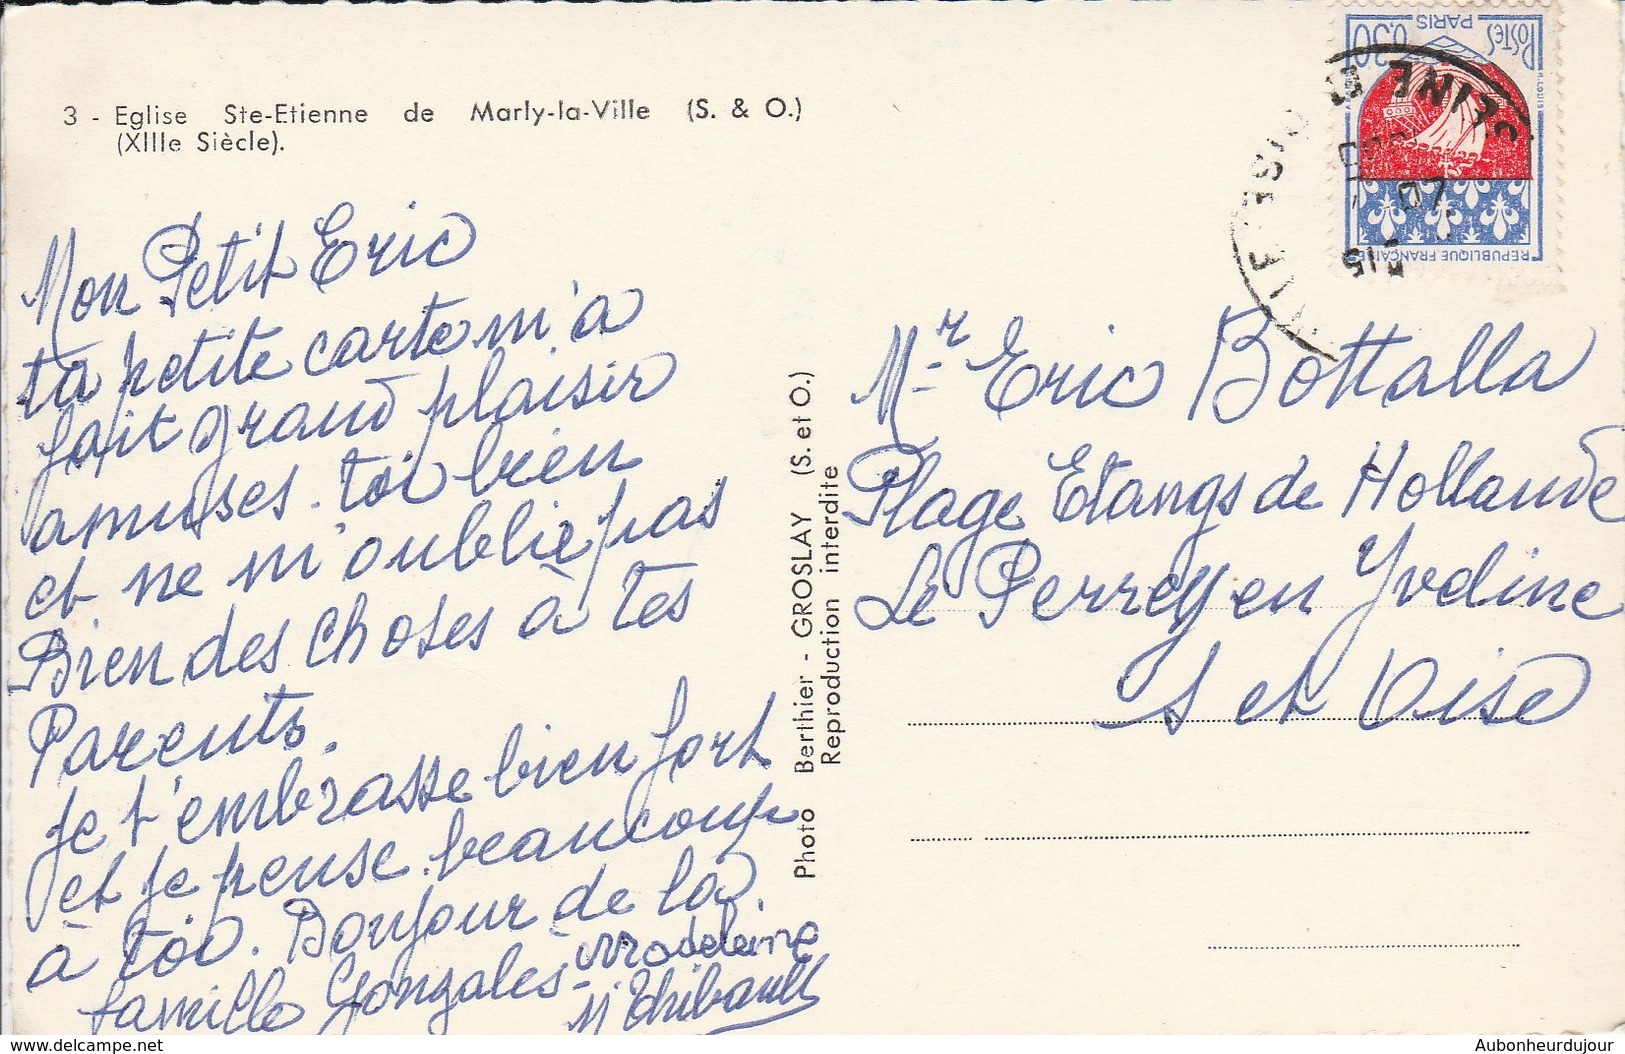 3 - Eglise Ste-Etienne de Marly-la-Ville (S. & O.)
(XIIIe Siècle).
Mon Petit Eric
ta petite carte m'a
fait grand plaisir
amuses-toi bien
et ne m'oublie pas
Bien des choses à tes
Parents.
Je t'embrasse bien fort
et je pense beaucoup
à toi. Bonjour de la
famille Gonzalès - Madeleine
M Thibault
Photo Berthier - GROSLAY (S. et O.)
Reproduction interdite
POSTES 0,30
PARIS
REPUBLIQUE FRANÇAISE
SEINE ET OISE
Mr Eric Bottalla
Plage Etangs de Hollande
Le Perrey en Yveline
S et Oise
delcampe.net
Aubonheurdujour